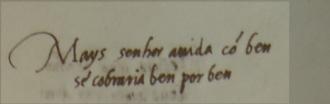 Mays senhor auida cõ ben
se cobraria ben por ben